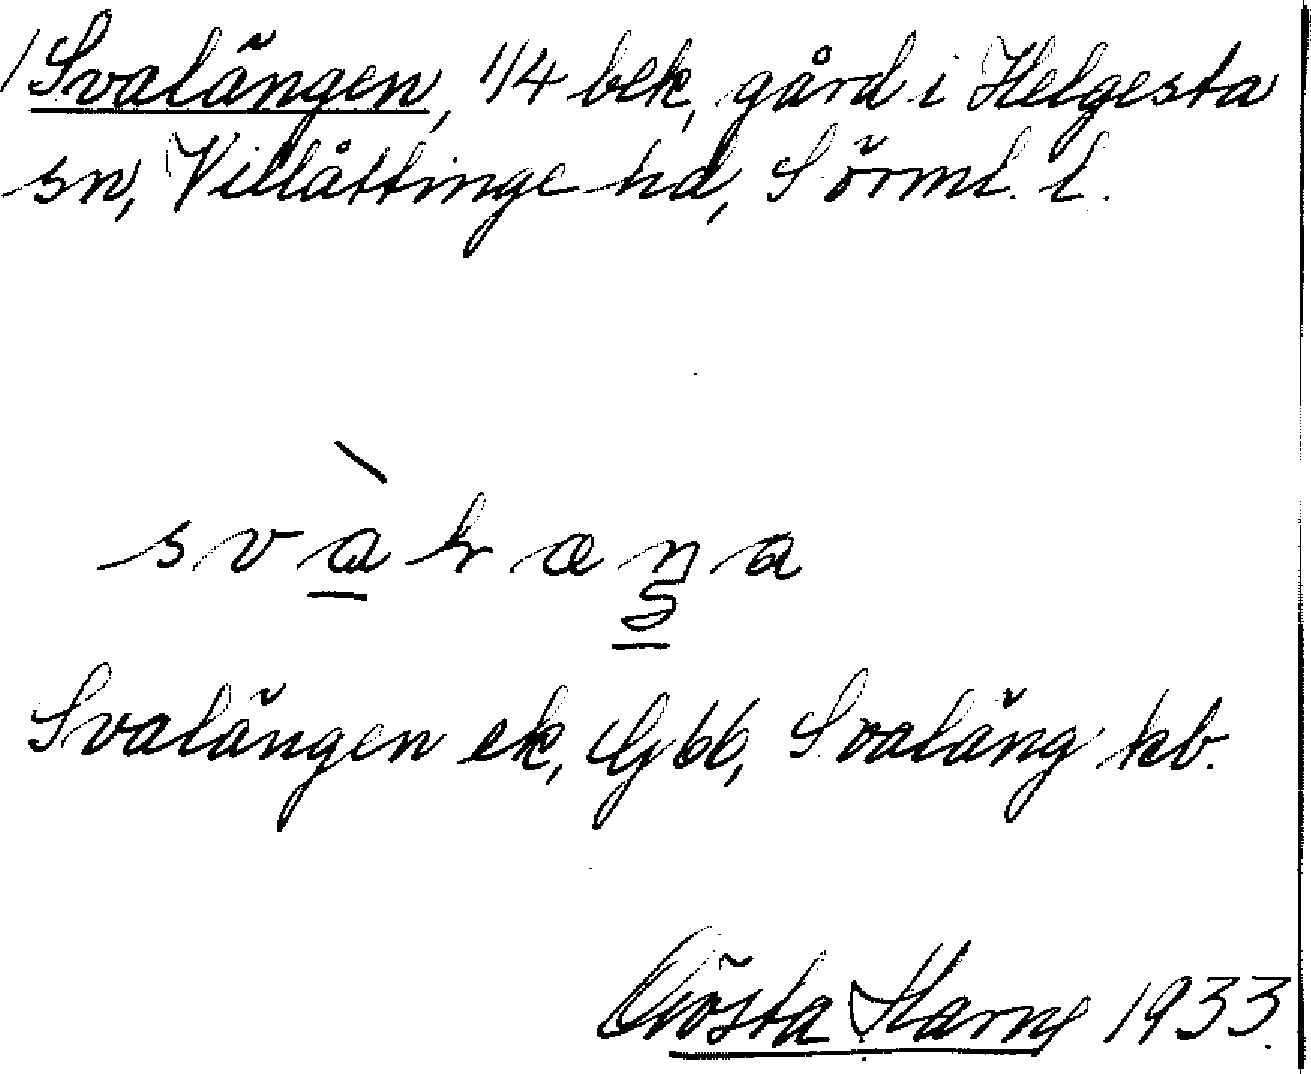 /Svalängen, 1/4 bek, gård i Helgesta
sn, Villåttinge hd, Sörml. l.
svàlæŋa
Svalängen ek, Gbb, Svaläng kb.
Gösta Harne 1933.